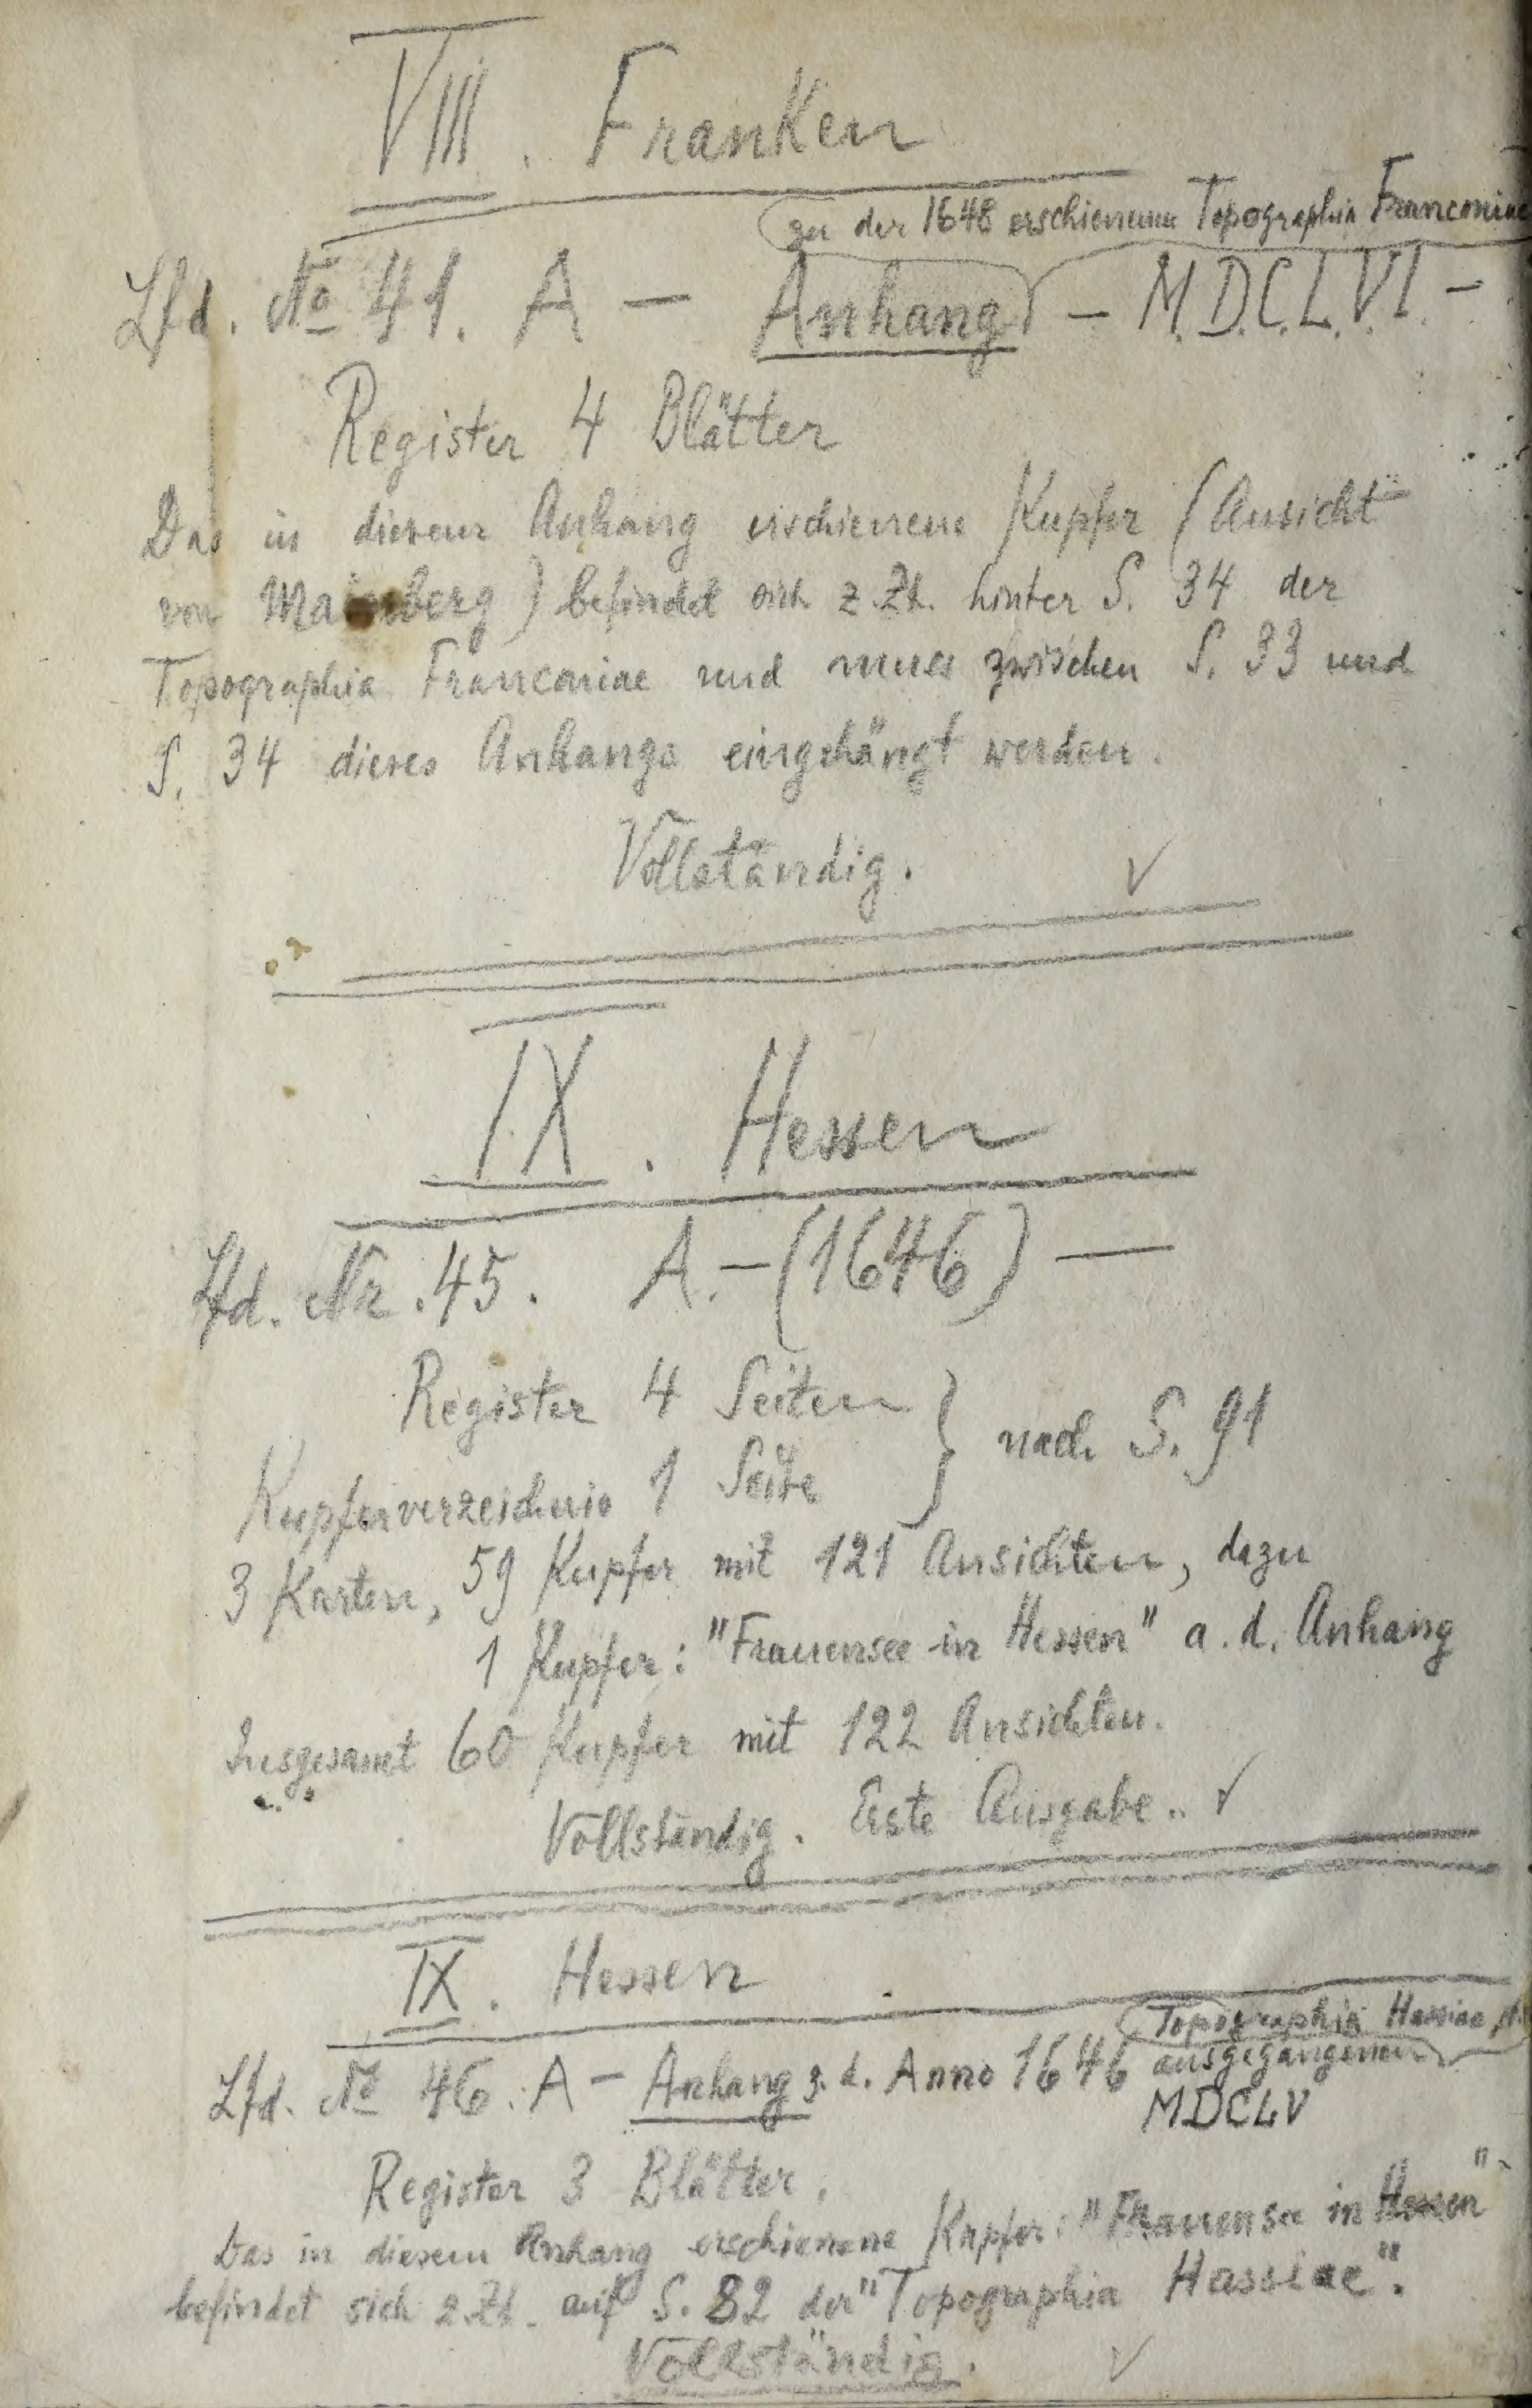 VIII. Franken
zu der 1648 erschienenen Topographia Franconiae
Lfd. No 41. A — Anhang — M.D.C.L.V.I. —
Register 4 Blätter
Das in diesem Anhang erschienene Kupfer (Ansicht
von Maienberg) befindet sich z.Zt. hinter S. 34 der
Topographia Franconiae und muss zwischen S. 33 und
S. 34 dieses Anhangs eingehängt werden.
Vollständig. ✓
IX. Hessen
Lfd. Nr. 45. A. — (1646) —
Register 4 Seiten } nach S. 91
Kupferverzeichnis 1 Seite
3 Karten, 59 Kupfer mit 121 Ansichten, dazu
1 Kupfer: "Frauensee in Hessen" a. d. Anhang
Insgesamt 60 Kupfer mit 122 Ansichten.
Vollständig. Erste Ausgabe. ✓
IX. Hessen
Topographia Hassiae
Lfd. No 46. A — Anhang z. d. Anno 1646 ausgegangenen
MDCLV
Register 3 Blätter.
Das in diesem Anhang erschienene Kupfer: "Frauensee in Hessen"
befindet sich z.Zt. auf S. 82 der "Topographia Hassiae".
Vollständig. ✓